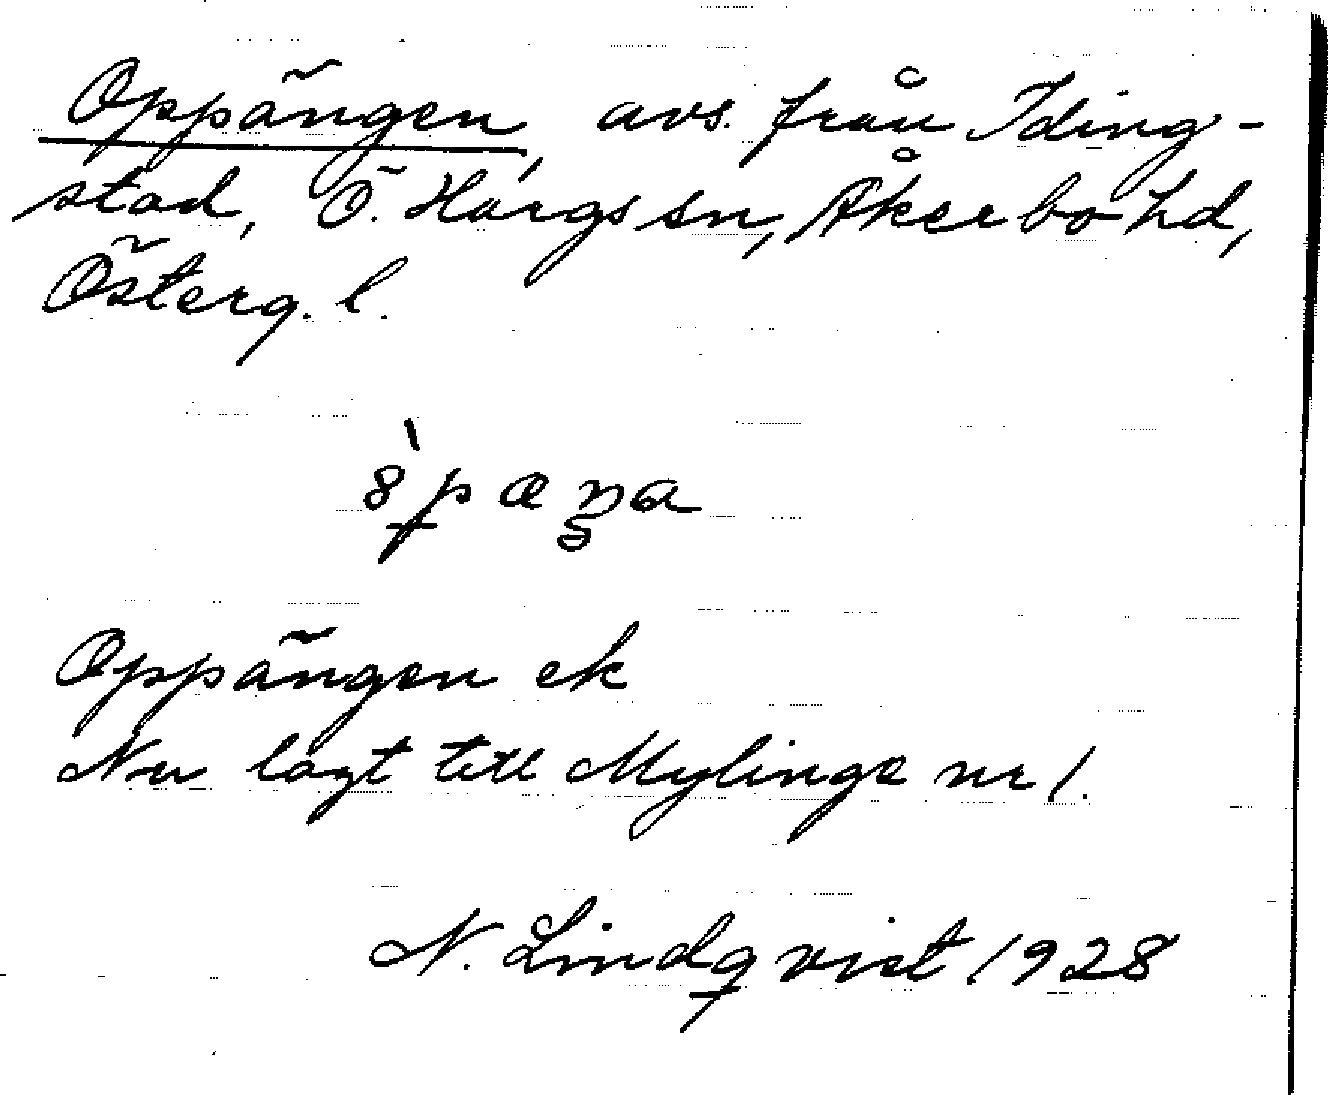 Oppängen, avs. från Iding-
stad, Ö. Hargs sn, Åkerbo hd,
Österg. l.
Oppängen ek
Nu lagt till Mylinge nr 1.
N. Lindqvist 1928